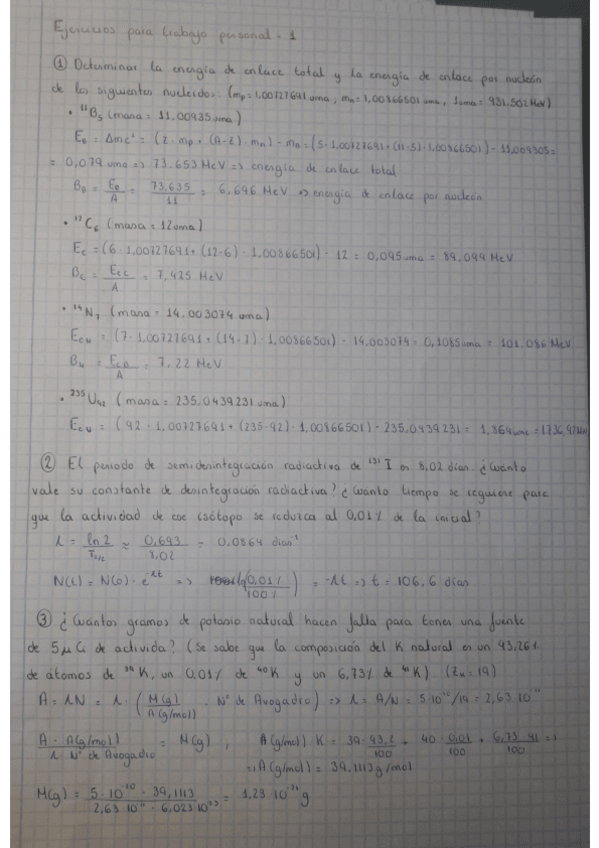 Ejercicios para trabajo personal - 1
① Determinar la energía de enlace total y la energía de enlace por nucleón
de los siguientes nucleidos. (mp=1,00727691 uma, mn=1,00866501 uma, 1uma=931.502 MeV)
• ¹¹B₅ (masa = 11.00935 uma)
E_B = Δmc² = (Z·mp + (A-Z)·mn) - mB = (5·1,00727691 + (11-5)·1,00866501) - 11.009305 =
= 0,079 uma => 73.653 MeV => energía de enlace total
B_B = E_B/A = 73,635/11 = 6,696 MeV => energía de enlace por nucleón
• ¹²C₆ (masa = 12uma)
E_C = (6·1,00727691 + (12-6)·1,00866501) - 12 = 0,095 uma = 89,094 MeV
B_C = E_CC/A = 7,425 MeV
• ¹⁴N₇ (masa = 14.003074 uma)
E_CN = (7·1,00727691 + (14-7)·1,00866501) - 14,003074 = 0,1085uma = 101.086 MeV
B_N = /A = 7,22 MeV
• ²³⁵U₉₂ (masa = 235.0439231 uma)
E_CU = (92·1,00727691 + (235-92)·1,00866501) - 235,0439231 = 1,864uma =
② El periodo de semidesintegración radiactiva de ¹³¹I es 8,02 días. ¿Cuánto
vale su constante de desintegración radiactiva? ¿Cuánto tiempo se requiere para
que la actividad de ese isótopo se reduzca al 0,01% de la inicial?
λ = ln2/T₁/₂ ≈ 0,693/8,02 = 0.0864 días⁻¹
N(t) = N(0)·e^-λt => (0,01%/100%) = -λt => t = 106,6 días
③ ¿Cuántos gramos de potasio natural hacen falta para tener una fuente
de 5μCi de activida? (Se sabe que la composición del K natural es un 93,26%
de átomos de ³⁹K, un 0,01% de ⁴⁰K y un 6,73% de ⁴¹K) (Z=19)
A = λN = λ·(M(g)/A(g/mol) · Nº de Avogadro) => λ = A/N = /19 =
A·A(g/mol)/λ·Nº de Avogadro = M(g), A(g/mol) K = 39·93,2/100 + 40·0,01/100 + 6,73·41/100 =>
=> A(g/mol) = 39,1113 g/mol
M(g) = = g